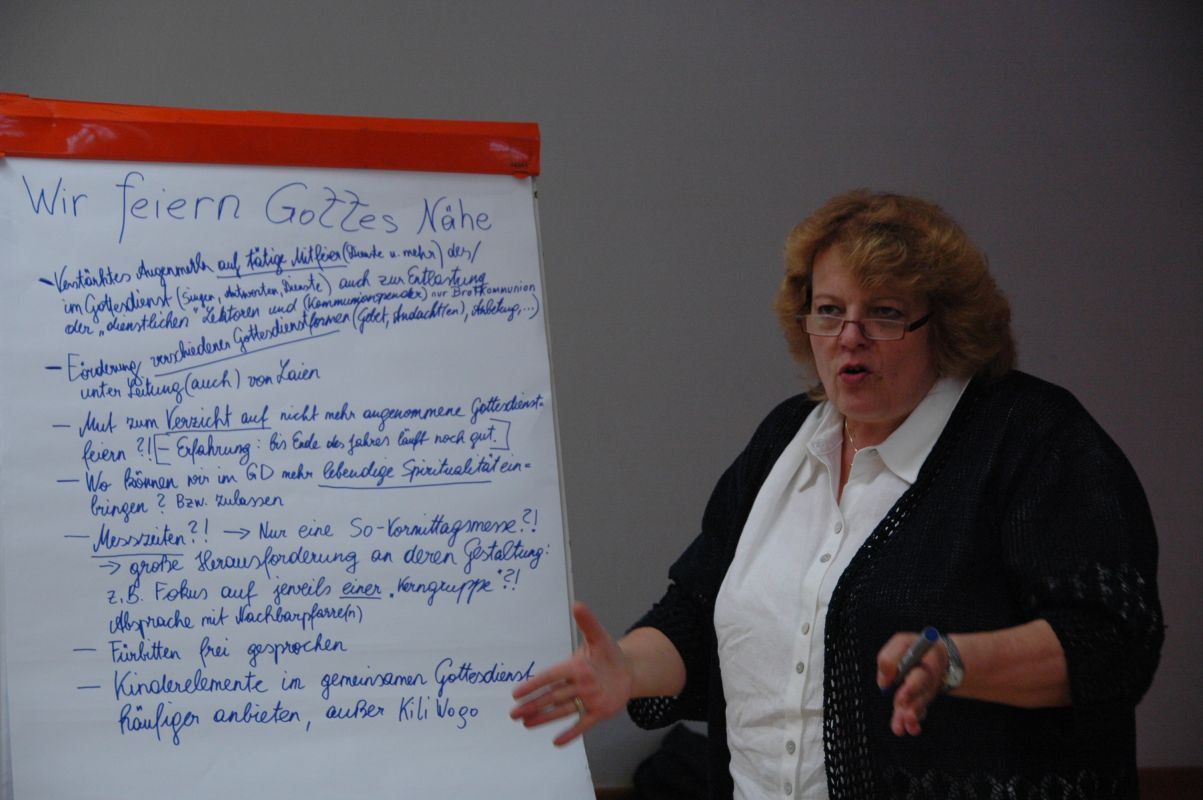 Wir feiern Gottes Nähe
- Verstärktes Augenmerk auf tätige Mitfeier (Dienste u. mehr) des/
im Gottesdienst (Singen, Antworten, Dienste) auch zur Entlastung
der "dienstlichen" Lektoren und (Kommunionspender) nur Brotkommunion
- Förderung verschiedener Gottesdienstformen (Gebet, Andacht(en), Anbetung,...)
unter Leitung (auch) von Laien
- Mut zum Verzicht auf nicht mehr angenommene Gottesdienst-
feiern?! [- Erfahrung: bis Ende des Jahres läuft noch gut.]
- Wo können wir im GD mehr lebendige Spiritualität ein=
bringen? Bzw. zulassen
- Messzeiten?! → Nur eine So-Vormittagsmesse?!
→ große Herausforderung an deren Gestaltung:
z.B. Fokus auf jeweils einer "Kerngruppe"?!
Absprache mit Nachbarpfarre(n)
- Fürbitten frei gesprochen
- Kinderelemente im gemeinsamen Gottesdienst
häufiger anbieten, außer KiliWogo